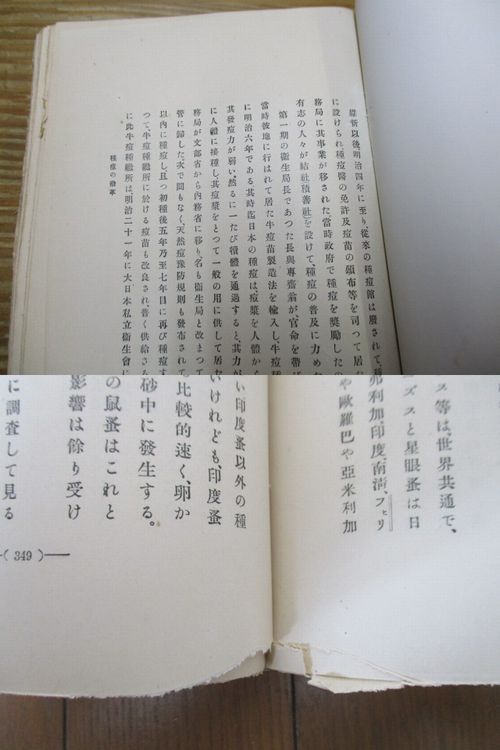 維新以後明治四年に至り、從來の種痘館は廢されて
に設けられ種痘醫の免許及痘苗の頒布等を司つて居
務局に其事業が移された當時政府で種痘を奬勵した
有志の人々が結社積善社を設けて、種痘の普及に力めた
第一期の衞生局長であつた長與專齋翁が、官命を帶び
當時彼地に行はれて居た牛痘苗製造法を輸入し、牛痘
に明治六年である其時迄日本の種痘は、痘漿を人體か
其發痘力が弱い、然るに一たび犢體を通過すると、其力が
に人體に接種し、其痘漿をとつて一般の用に供して居
務局が文部省から內務省に移り、名も衞生局と改まつて
管に歸した、次で間もなく、天然痘豫防規則も發布されて
以內に種痘し且つ初種後五年乃至七年目に再び種痘す
つて、牛痘種繼所に於ける痘苗も改良され、普く供給さ
に此牛痘種繼所は、明治二十一年に大日本私立衞生會
種痘の沿革
ス等は、世界共通で、
ズスと星眼蚤は日
弗利加、印度、南淸、フヒリ
や歐羅巴や亞米利加
い印度蚤以外の種
いけれども、印度蚤
比較的速く、卵か
砂中に發生する。
の鼠蚤はこれと
影響は餘り受け
に調査して見る
—( 349 )—